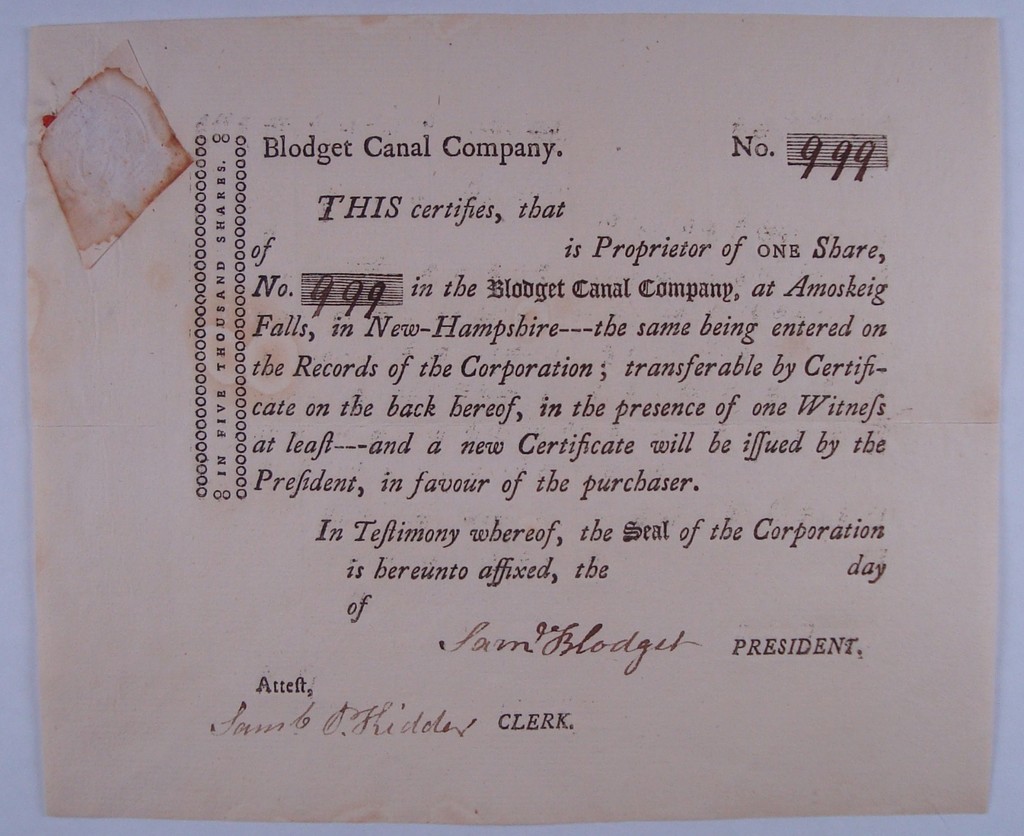 IN FIVE THOUSAND SHARES.
Blodget Canal Company. No. 999
THIS certifies, that
of is Proprietor of ONE Share,
No. 999 in the Blodget Canal Company, at Amoskeig
Falls, in New-Hampshire---the same being entered on
the Records of the Corporation; transferable by Certifi-
cate on the back hereof, in the presence of one Witneſs
at leaſt---and a new Certificate will be iſſued by the
Preſident, in favour of the purchaser.
In Teſtimony whereof, the Seal of the Corporation
is hereunto affixed, the day
of
Saml Blodget PRESIDENT.
Atteſt,
Saml P. Kidder CLERK.